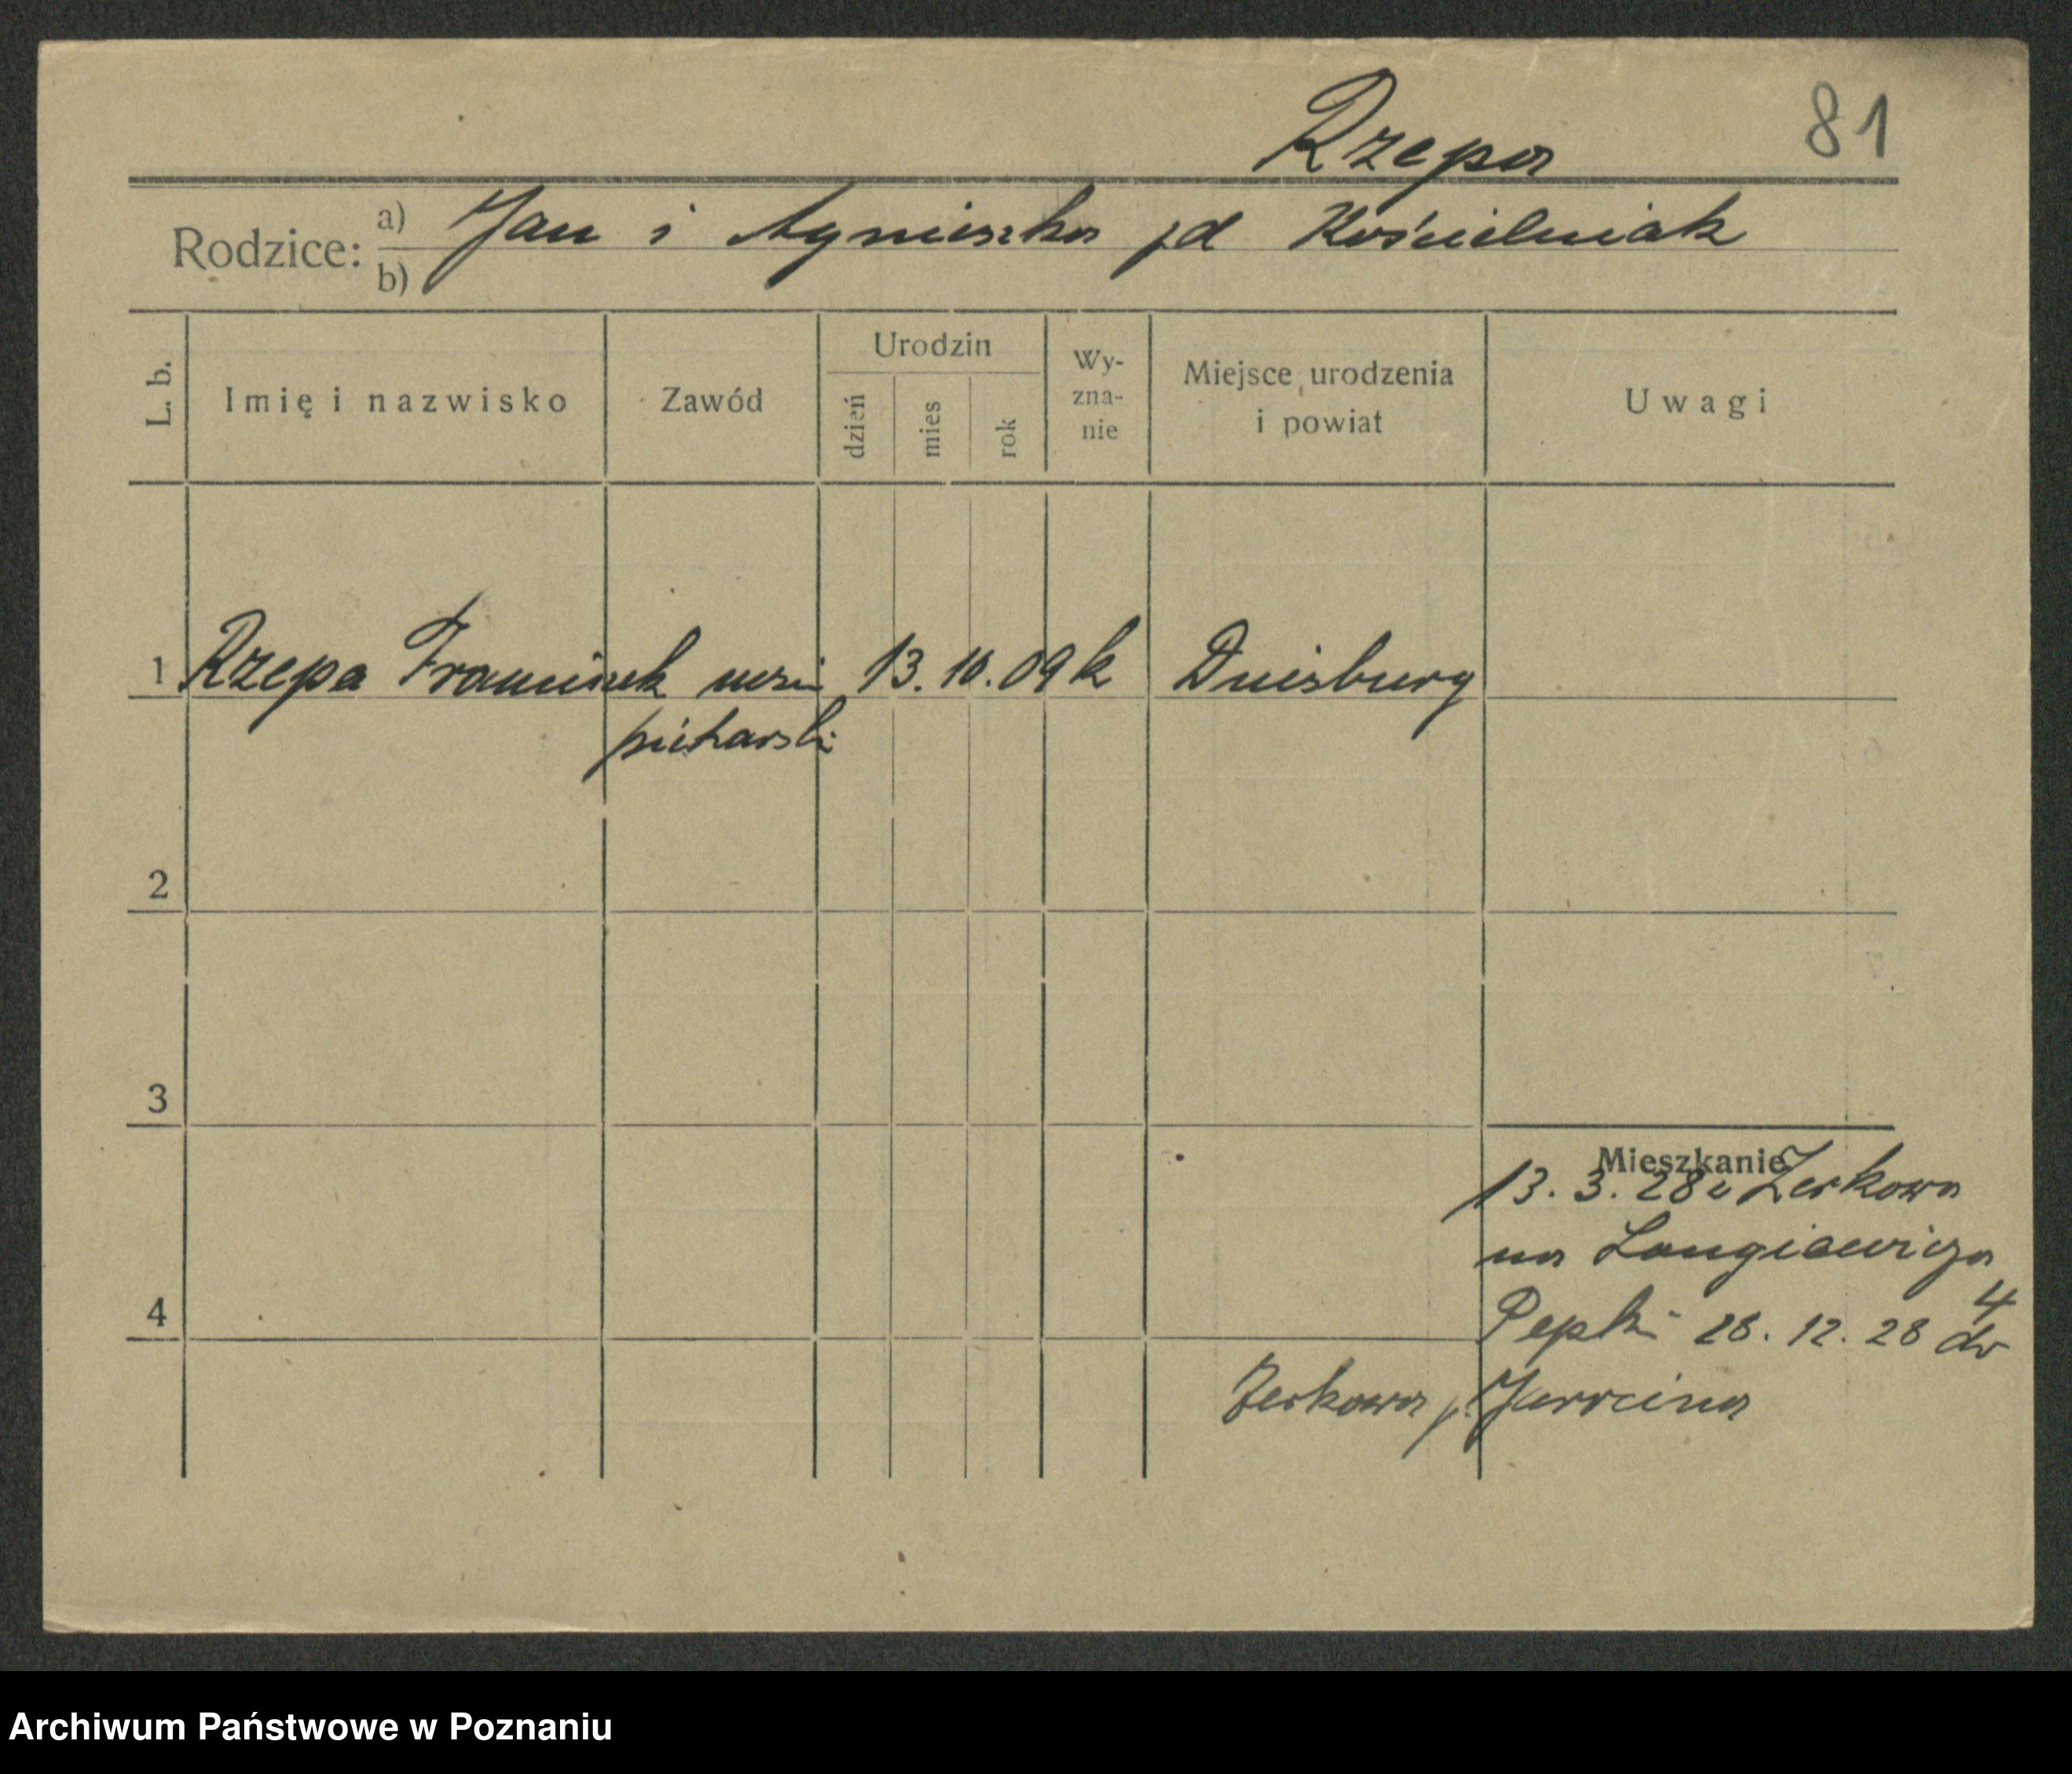 Rzepa 81
Rodzice: a) Jan i Agnieszka pd Kościelniak
b)
L. b. Imię i nazwisko Zawód Urodzin dzień mies rok Wy-zna-nie Miejsce urodzenia i powiat Uwagi
1 Rzepa Franciszek uczeń 13. 10. 09 k Duisburg
piekarski
2
3
Mieszkanie
13. 3. 28 z Zerkowa
na Langiewicza
4
4 Pepki 28. 12. 28 do
Zerkowa p. Jarocina
Archiwum Państwowe w Poznaniu